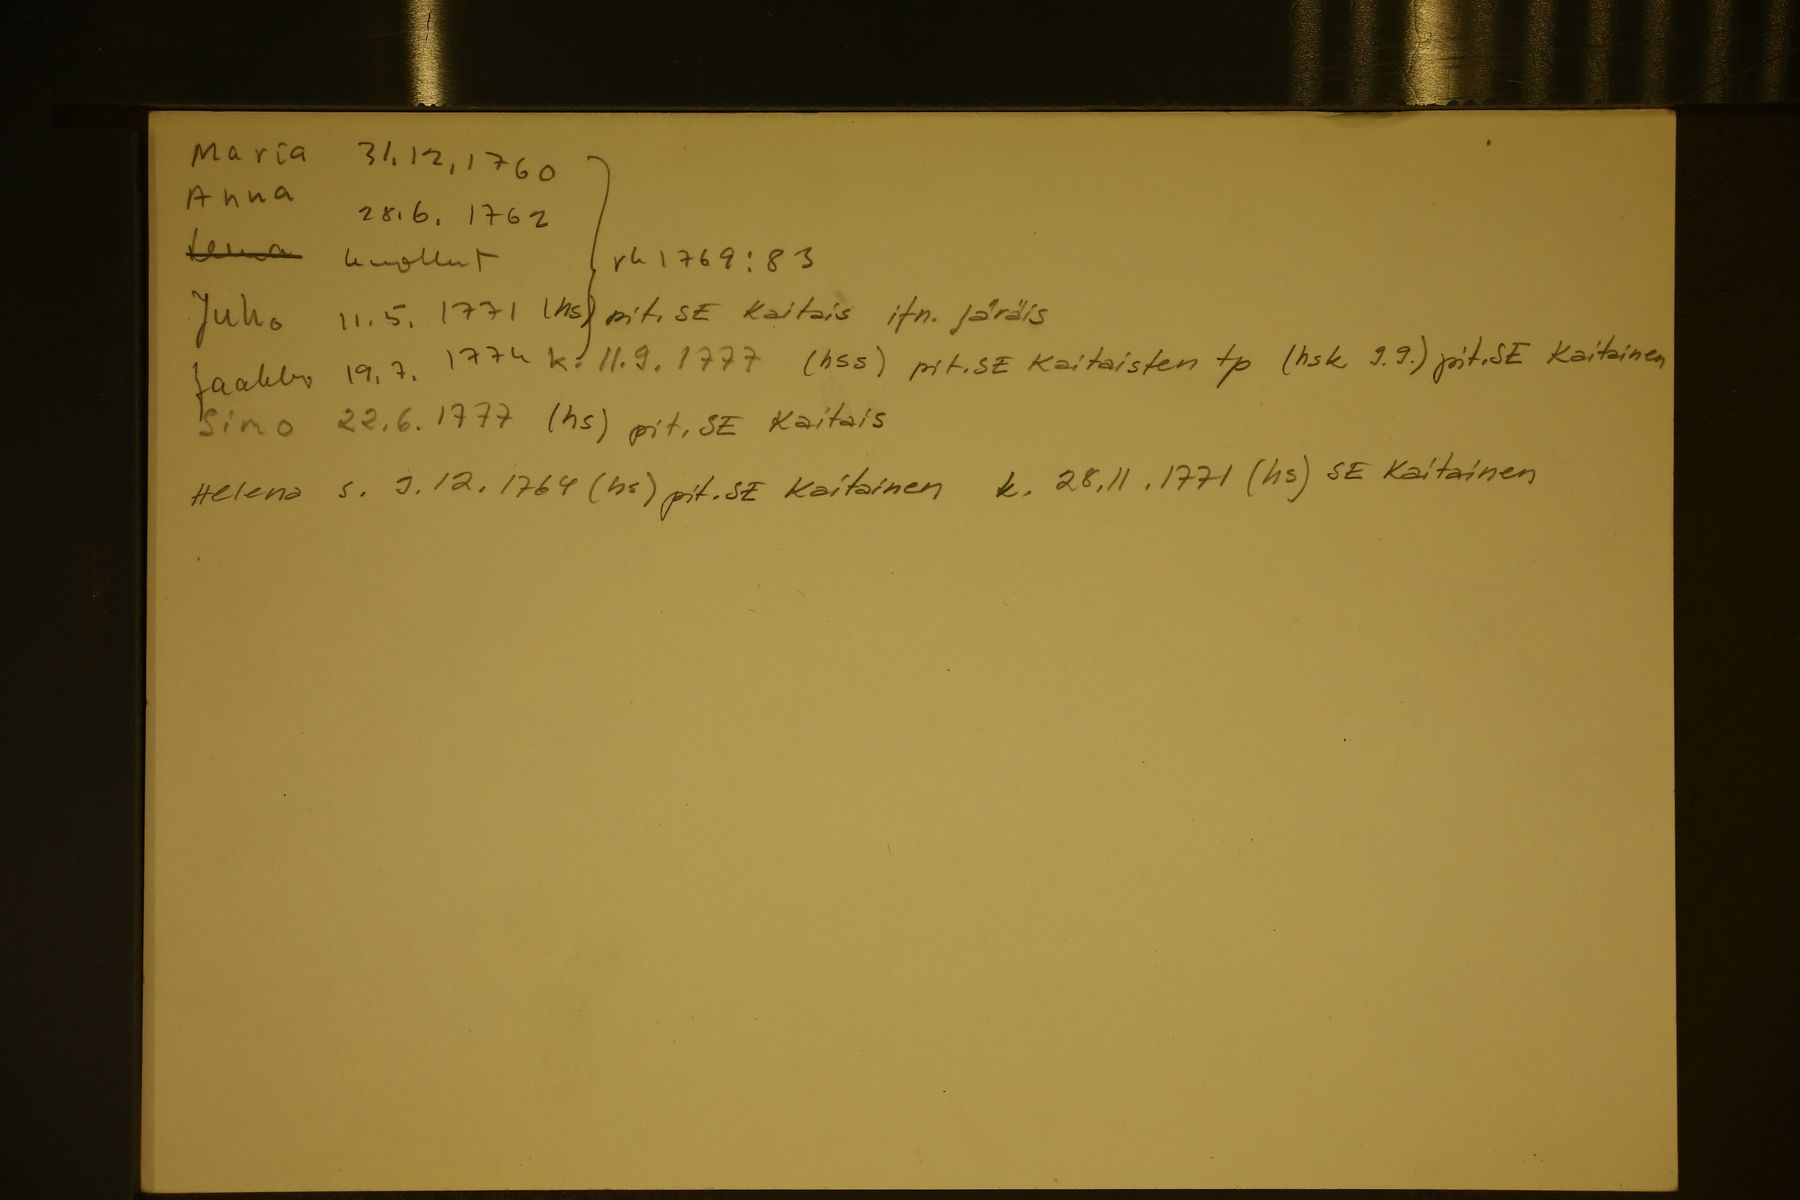 Maria 31.12.1760
Anna 28.6. 1762
Leena kuollut rk 1769:83
Juho 11.5. 1771 (hs) pit. SE Kaitais itn. Järäis
Jaakko 19.7. 1774 k. 11.9.1777 (hss) pit. SE Kaitaisten tp (hsk 9.9.) pit. SE Kaitainen
Simo 22.6.1777 (hs) pit. SE Kaitais
Helena s. 9.12.1764 (hs) pit. SE Kaitainen k. 28.11.1771 (hs) SE Kaitainen